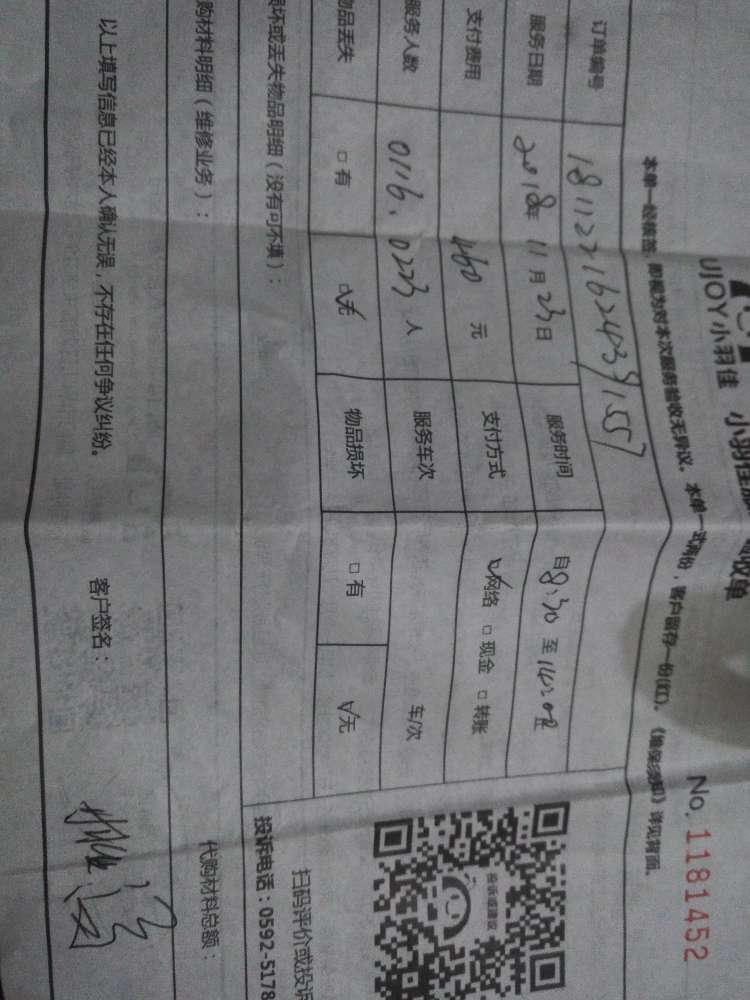 UJOY小羽佳 小羽佳 收单
No.1181452
本单一经核签，即视为对本次服务验收无异议。本单一式两份，客户留存一份(红)。《维保须知》详见背面。
订单编号
服务日期 2018年 11月 23日 服务时间 自8:30 至14:00
支付费用 460 元 支付方式 ☑网络 □现金 □转账
服务人数 0116、0223 人 服务车次 车/次
物品丢失 □有 ☑无 物品损坏 □有 ☑无
坏或丢失物品明细（没有可不填）：
扫码评价或投诉
投诉电话：0592-5178
购材料明细（维修业务）： 代购材料总额：
以上填写信息已经本人确认无误，不存在任何争议纠纷。 客户签名：